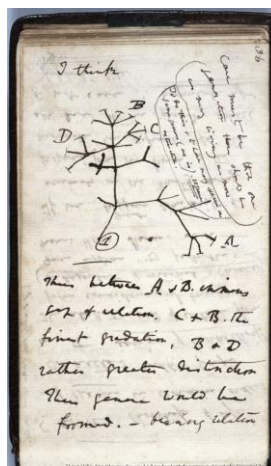 I think
36
Case must be that one
generation then should be
as many living as now
To do this & to have many species in
same genus (as is) requires
extinction.
B
C
D
A
1
Thus between A & B. immense
gap of relation. C & B. the
finest gradation, B & D
rather greater distinction
Thus genera would be
formed. — bearing relation